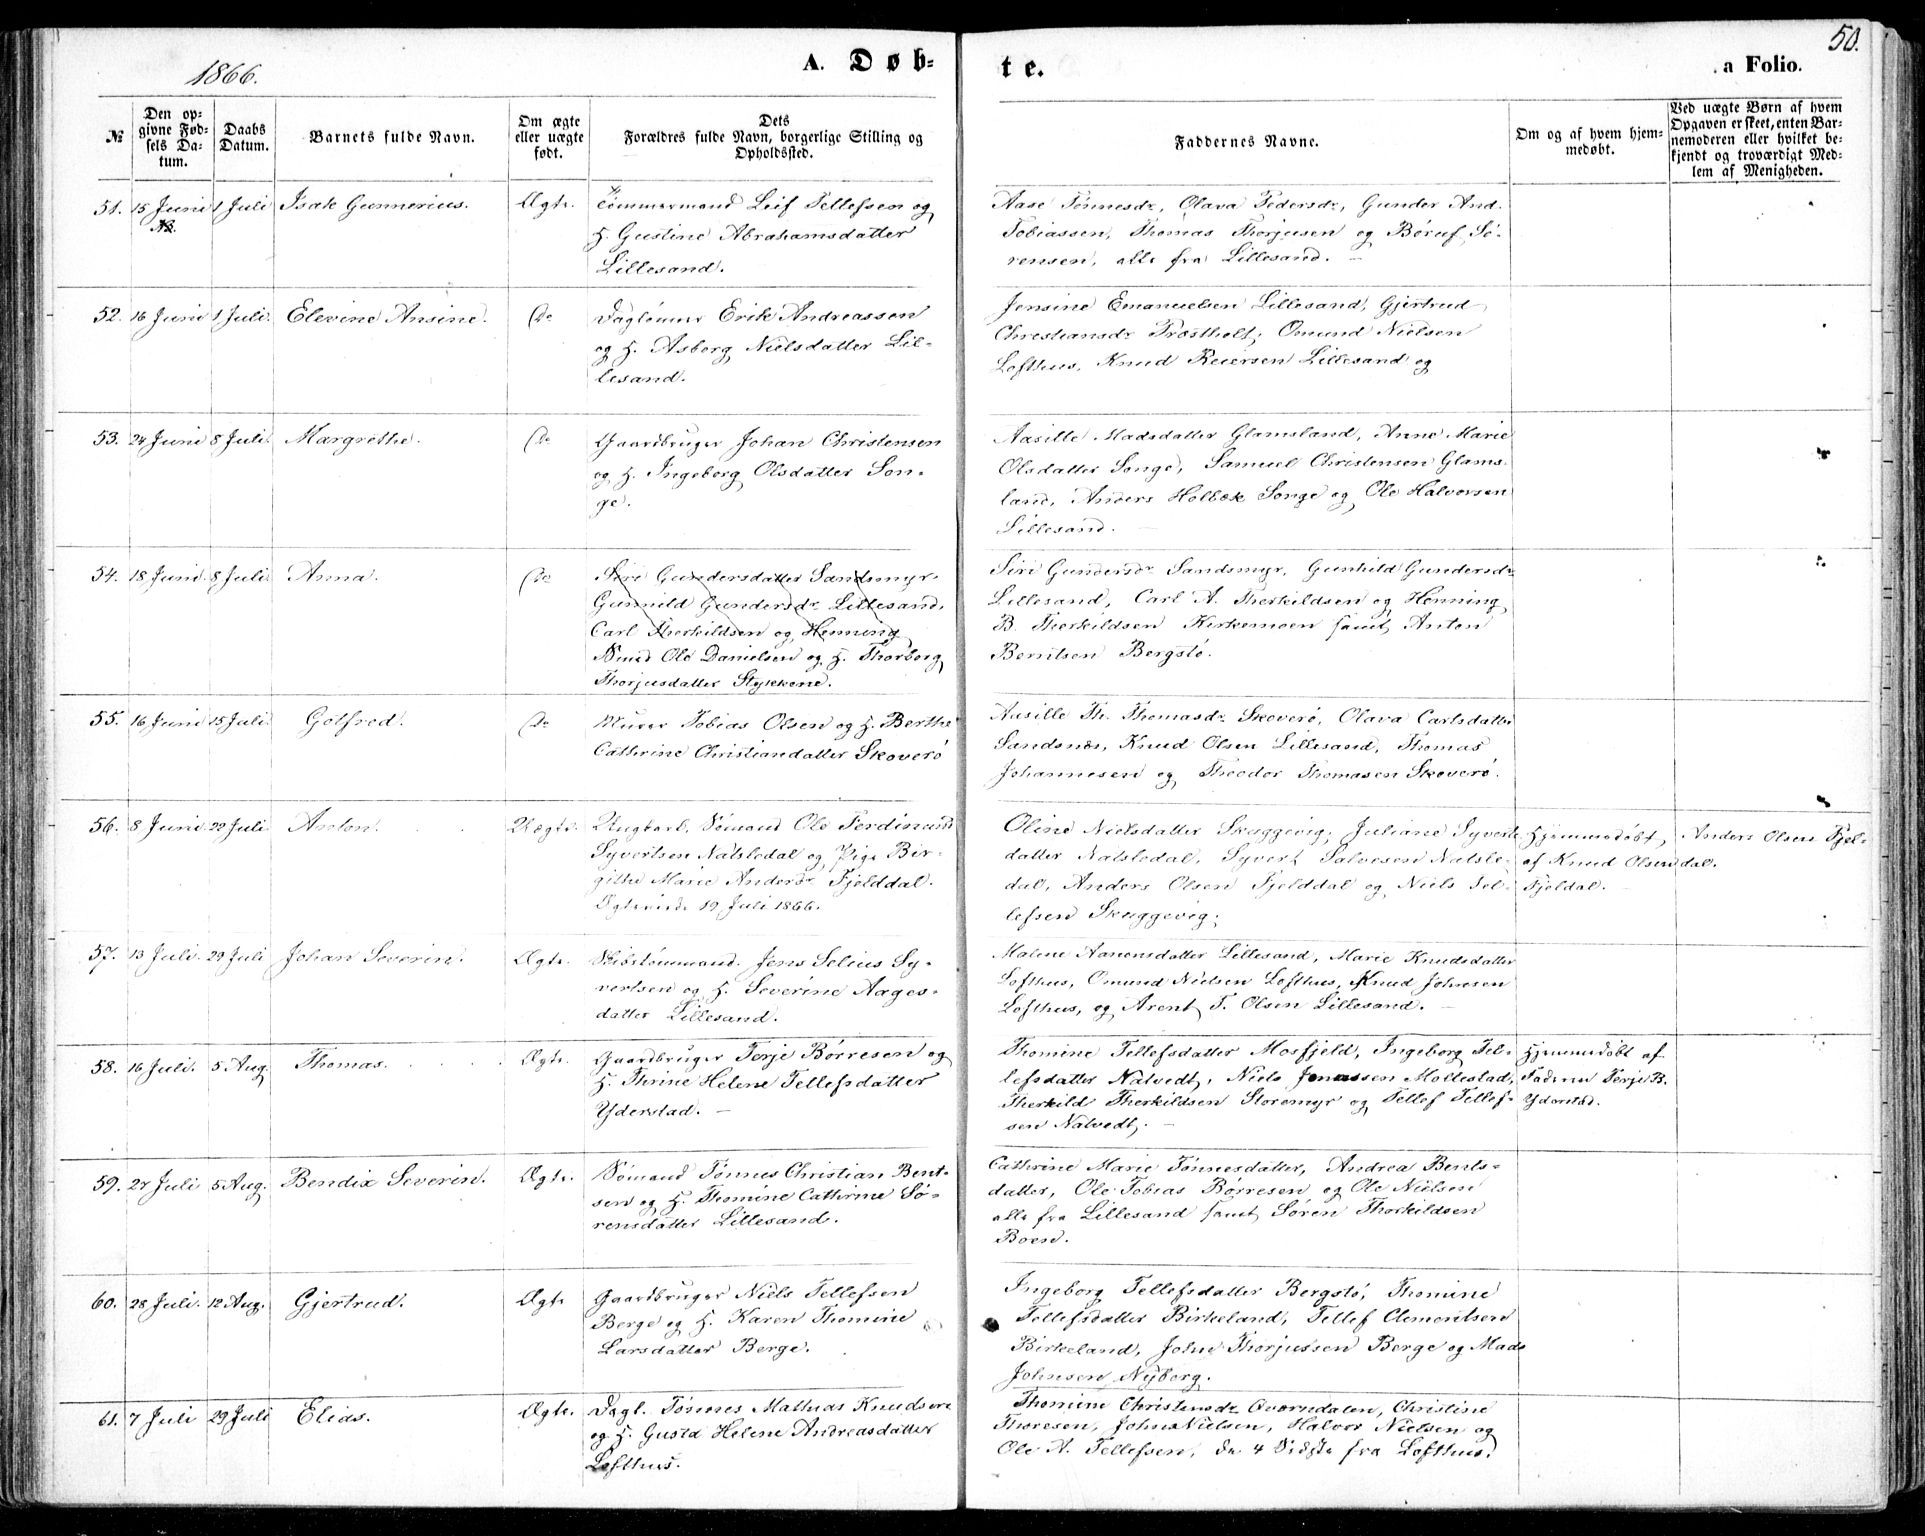 1866.
A. Døb-
te.
a Folio.
50.
№
Den op-
givne Fød-
sels Da-
tum.
Daabs
Datum.
Barnets fulde Navn.
Om ægte
eller uægte
født.
Dets
Forældres fulde Navn, borgerlige Stilling og
Opholdssted.
Faddernes Navne.
Om og af hvem hjem-
medøbt.
Ved uægte Børn af hvem
Opgaven er skeet, enten Bar-
nemoderen eller hvilket be-
kjendt og troværdigt Med-
lem af Menigheden.
51. 15 Juni 1 Juli Isak Gunnerius. Ægte. Tømmermand Leif Tellefsen og
H. Gustine Abrahamsdatter
Lillesand.
Aase Tønnesdr, Olava Pedersdr, Gunder And.
Tobiassen, Thomas Thorjusen og Børuf Sø-
rensen, alle fra Lillesand. –
52. 16 Juni 1 Juli. Elevine Ansine. Do Daglønner Erik Andreassen
og H. Asborg Nielsdatter Lil-
lesand.
Jensine Emanuelsen Lillesand, Gjertrud
Christiansdr Præstholt, Omund Nielsen
Lofthus, Knud Reiersen Lillesand og
53. 24 Juni 8 Juli. Margrethe. Do Gaardbruger Johan Christensen
og H. Ingeborg Olsdatter Son-
ge.
Aasille Madsdatter Glamsland, Anne Marie
Olsdatter Songe, Samuel Christensen Glams-
land, Anders Holbek Songe og Ole Halvorsen
Lillesand. –
54. 18 Juni. 8 Juli Anna. Do Siri Gundersdatter Sandsmyr.
Gunnild Gundersdr Lillesand,
Carl Therkildsen og Henning
Smed Ole Danielsen og H. Thorborg
Thorjusdatter Stykkene.
Siri Gundersdr Sandsmyr, Gunhild Gundersdr
Lillesand, Carl A. Therkildsen og Henning
B. Therkildsen Kirkemoen samt Anton
Berntsen Bergstø.
55. 16 Juni 15 Juli. Gotfred. Do Murer Tobias Olsen og H. Berthe
Cathrine Christiandatter Skoverø
Aasille Th. Thomasdr Skoverø, Olava Carlsdatter
Sandsnes, Knud Olsen Lillesand, Thomas
Johannesen og Theodor Thomasen Skoverø.
56. 8 Juni 22 Juli Anton. Uægte. Ungkarl, Sømand Ole Ferdinand
Syvertsen Natsledal og Pige Bir-
githe Marie Andersdr Fjelddal.
Ægteviede 19 Juli 1866.
Oline Nielsdatter Skuggevig, Juliane Syverts-
datter Natsledal, Syvert Salvesen Natsle-
dal, Anders Olsen Fjelddal og Niels Tel-
lefsen Skuggevig.
Hjemmedøbt,
af Knud Olsen
Fjeldal. –
Anders Olsen Fjel-
dal.
57. 13 Juli. 29 Juli Johan Severin. Ægte. Skibstømmand. Jens Selius Sy-
vertsen og H. Severine Aages-
datter Lillesand.
Malene Aanonsdatter Lillesand, Marie Knudsdatter
Lofthus, Omund Nielsen Lofthus, Knud Johnsen
Lofthus, og Arent T. Olsen Lillesand. –
58. 16 Juli. 5 Aug. Thomas. Ægte. Gaardbruger Terje Børresen og
H. Thrine Helene Tellefsdatter
Yderstad. –
Thomine Tellefsdatter Mosfjeld, Ingeborg Tel-
lefsdatter Natvedt, Niels Jonassen Mollestad,
Therkild Therkildsen Storemyr og Tellef Tellef-
sen Natvedt. –
Hjemmedøbt af
Faderen Terje B.
Yderstad.
59. 27 Juli 5 Aug. Bendix Severin. Ægte. Sømand Tønnes Christian Bent-
sen og H. Thomine Cathrine Sø-
rensdatter Lillesand.
Cathrine Marie Tønnesdatter, Andrea Bents-
datter, Ole Tobias Børresen og Ole Nielsen
alle fra Lillesand samt Søren Thorkildsen
Boen.
60. 28 Juli. 12 Aug. Gjertrud. Ægte Gaardbruger Niels Tellefsen
Berge og H. Karen Thomine
Larsdatter Berge.
Ingeborg Tellefsdatter Bergstø, Thomine
Tellefsdatter Birkeland, Tellef Clementsen
Birkeland, John Thorjussen Berge og Mads
Johnsen Nyborg.
61. 7 Juli 29 Juli Elias. Ægte. Dagl. Tønnes Mathias Knudsen
og H. Gusta Helene Andreasdatter
Lofthus.
Thomine Christensdr Qværndalen, Christine
Thoresen, John Nielsen, Halvor Nielsen og
Ole A. Tellefsen, de 4 Sidste fra Lofthus.